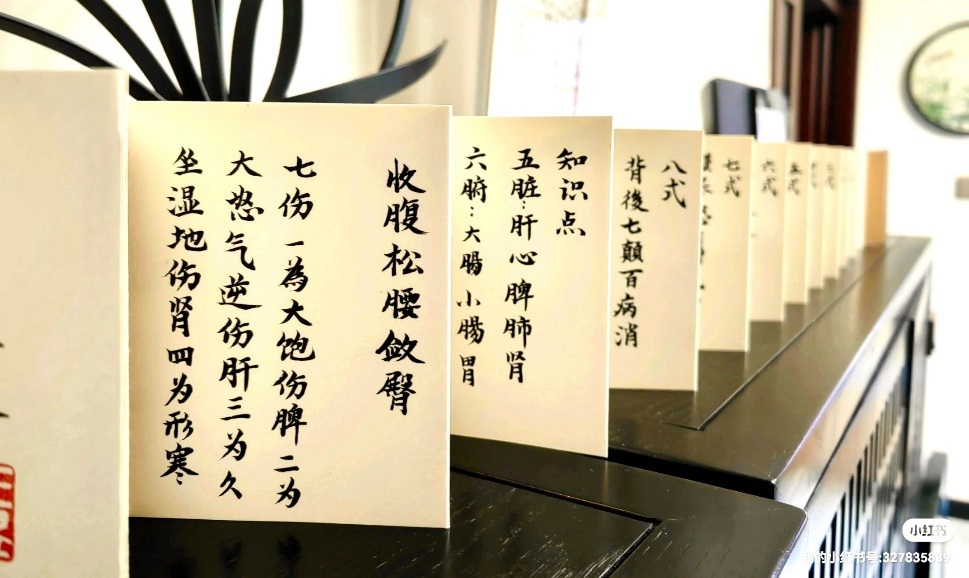 收腹松腰敛臀
七伤 一為大饱伤脾 二为
大怒气逆伤肝三为久
坐湿地伤肾四为形寒
知识点
五脏:肝心脾肺肾
六腑:大肠小肠胃
八式
背後七顛百病消
七式
六式
五式
小红书
小红书号:327835889